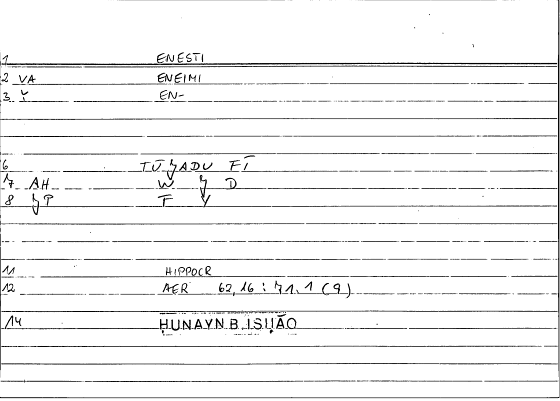 1 ENESTI
2 VA ENEIMI
3 Y̌ EN-
6 TŪɮADU FĪ
7 AH W ɮ D
8 F Y
11 HIPPOCR
12 AER 62,16 : 1.1 (9)
14 ḤUNAYN B. ISḤĀQ